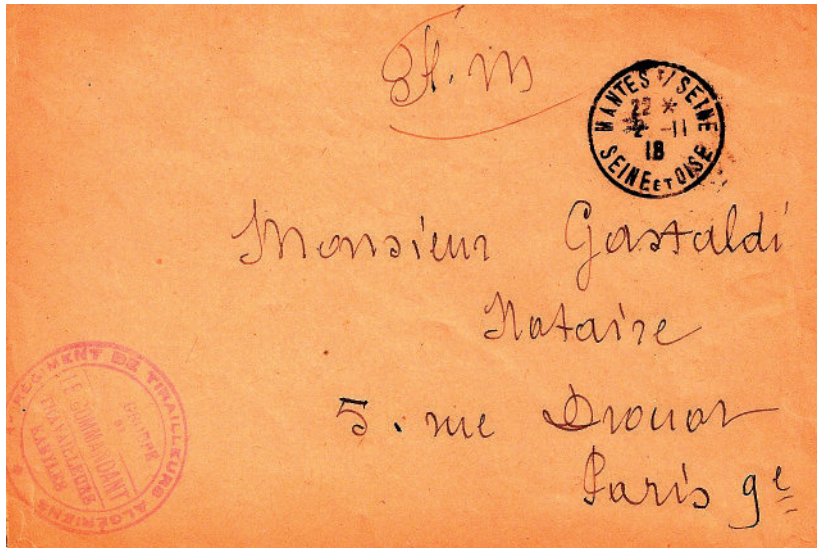 F. M
MANTES S/ SEINE
22 *
2 -11
18
SEINE ET OISE
Monsieur Gastaldi
Notaire
5. rue Drouot
Paris 9e
RÉGIMENT DE TIRAILLEURS ALGÉRIENS
GROUPE
DE
TRAVAILLEURS
KABYLES
LE COMMANDANT